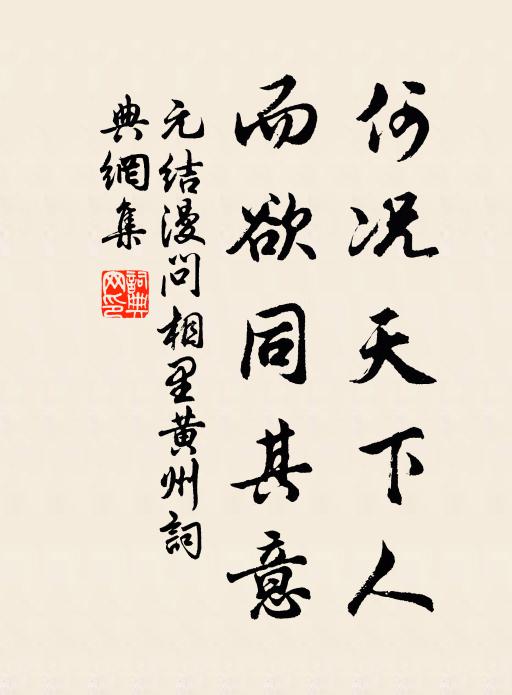 何况天下人
而欲同其意
元结漫问相里黄州詞
典網集
詞典网印